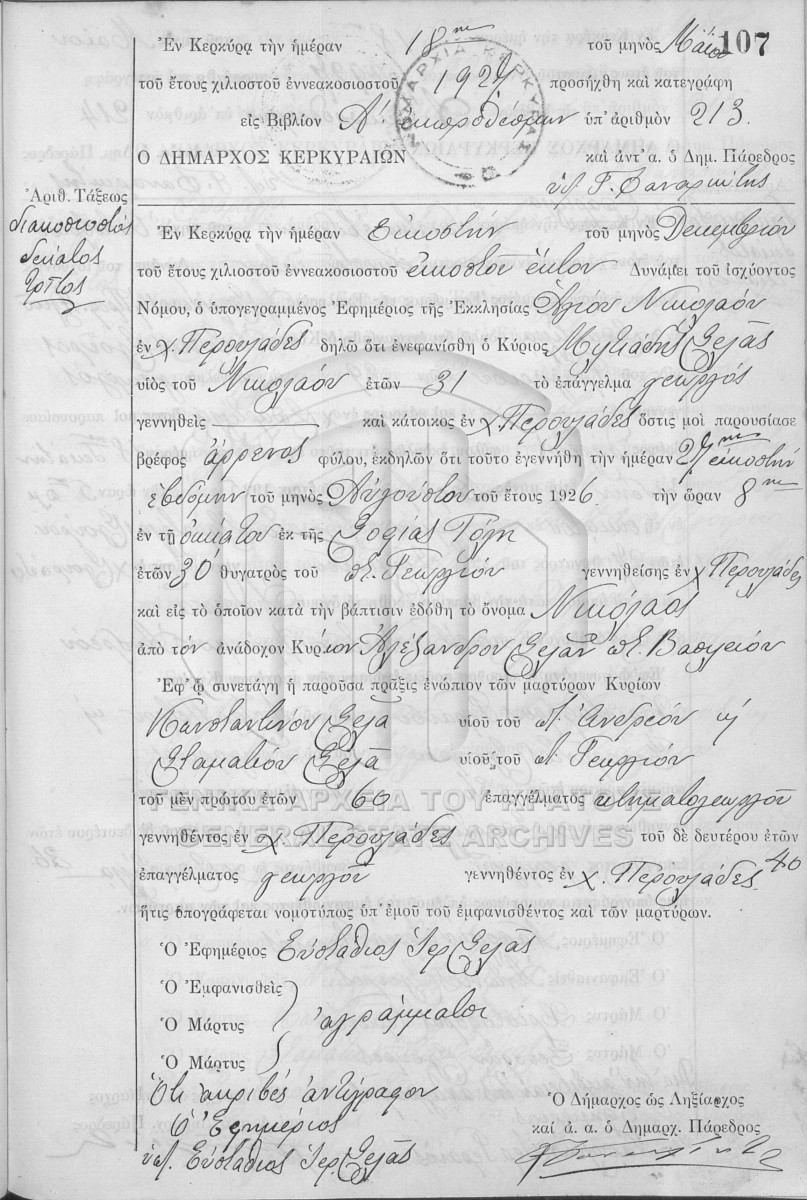 107
Ἐν Κερκύρᾳ τὴν ἡμέραν 18ην τοῦ μηνὸς Μαΐου
τοῦ ἔτους χιλιοστοῦ ἐννεακοσιοστοῦ 1927 προσήχθη καὶ κατεγράφη
εἰς Βιβλίον Α' ὑπ' ἀριθμὸν 213.
Ο ΔΗΜΑΡΧΟΣ ΚΕΡΚΥΡΑΙΩΝ καὶ ἀντ' α. ὁ Δημ. Πάρεδρος
Ἀριθ. Τάξεως
διακοσιοστός
δέκατος
τρίτος
Ἐν Κερκύρᾳ τὴν ἡμέραν Εἰκοστήν τοῦ μηνὸς Δεκεμβρίου
τοῦ ἔτους χιλιοστοῦ ἐννεακοσιοστοῦ εἰκοστοῦ ἕκτου Δυνάμει τοῦ ἰσχύοντος
Νόμου, ὁ ὑπογεγραμμένος Ἐφημέριος τῆς Ἐκκλησίας Ἁγίου Νικολάου
ἐν χ. Περουλάδες δηλῶ ὅτι ἐνεφανίσθη ὁ Κύριος Μιλτιάδης Σελᾶς
υἱὸς τοῦ Νικολάου ἐτῶν 31 τὸ ἐπάγγελμα γεωργός
γεννηθεὶς καὶ κάτοικος ἐν χ. Περουλάδες ὅστις μοὶ παρουσίασε
βρέφος ἄρρενος φύλου, ἐκδηλῶν ὅτι τοῦτο ἐγεννήθη τὴν ἡμέραν 27ην εἰκοστήν
ἑβδόμην τοῦ μηνὸς Αὐγούστου τοῦ ἔτους 1926 τὴν ὥραν 8ην
ἐν τῇ οἰκίᾳ του ἐκ τῆς Σοφίας Γόλη
ἐτῶν 30 θυγατρὸς τοῦ ποτ. Γεωργίου γεννηθείσης ἐν χ. Περουλάδες
καὶ εἰς τὸ ὁποῖον κατὰ τὴν βάπτισιν ἐδόθη τὸ ὄνομα Νικόλαος
ἀπὸ τὸν ἀνάδοχον Κύριον Ἀλέξανδρον Σελᾶν ποτ. Βασιλείου
Ἐφ' ᾧ συνετάγη ἡ παροῦσα πρᾶξις ἐνώπιον τῶν μαρτύρων Κυρίων
Κωνσταντίνου Σελᾶ υἱοῦ τοῦ ποτ. Ἀνδρέου ἡ
Σταματίου Σελᾶ υἱοῦ τοῦ ποτ. Γεωργίου
τοῦ μὲν πρώτου ἐτῶν 60 ἐπαγγέλματος κτηματογεωργοῦ
ΓΕΝΙΚΑ ΑΡΧΕΙΑ ΤΟΥ ΚΡΑΤΟΥΣ
GENERAL STATE ARCHIVES
γεννηθέντος ἐν χ. Περουλάδες τοῦ δὲ δευτέρου ἐτῶν 40
ἐπαγγέλματος γεωργοῦ γεννηθέντος ἐν χ. Περουλάδες
ἥτις ὑπογράφεται νομοτύπως ὑπ' ἐμοῦ τοῦ ἐμφανισθέντος καὶ τῶν μαρτύρων.
Ὁ Ἐφημέριος Εὐστάθιος Ἱερ. Σελᾶς
Ὁ Ἐμφανισθεὶς
Ὁ Μάρτυς ἀγράμματοι
Ὁ Μάρτυς
Ὅτι ἀκριβές ἀντίγραφον
Ὁ Ἐφημέριος
ὑπ. Εὐστάθιος Ἱερ. Σελᾶς
Ὁ Δήμαρχος ὡς Ληξίαρχος
καί ἀ. α. ὁ Δημαρχ. Πάρεδρος